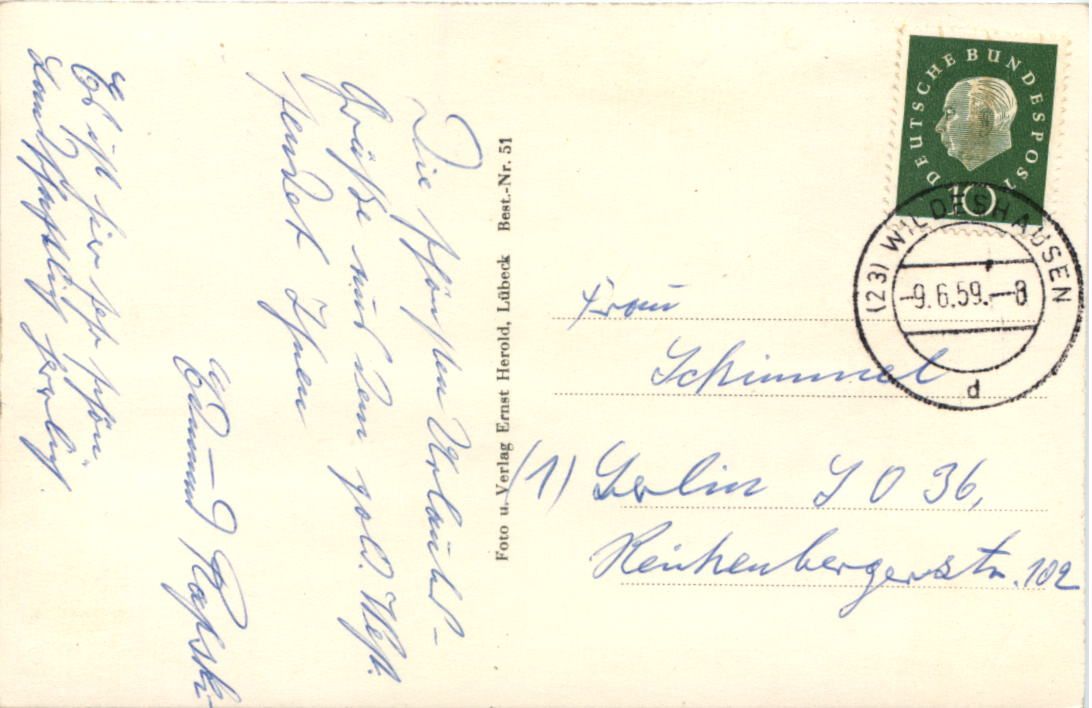 Die schönsten Urlaubs-
Grüße aus dem gold. West.
sendet Ihnen
Edmund
Es ist hier sehr schön
landschaftlich herrlich.
Foto u. Verlag Ernst Herold, Lübeck Best.-Nr. 51
DEUTSCHE BUNDESPOST
10
(23) WILDESHAUSEN
-9.6.59.-8
d
Frau
Schimmel
(1) Berlin SO 36,
Reichenbergerstr. 102